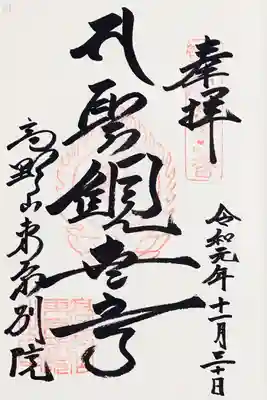 奉拝
令和元年十一月三十日
聖観世音
高野山東京別院